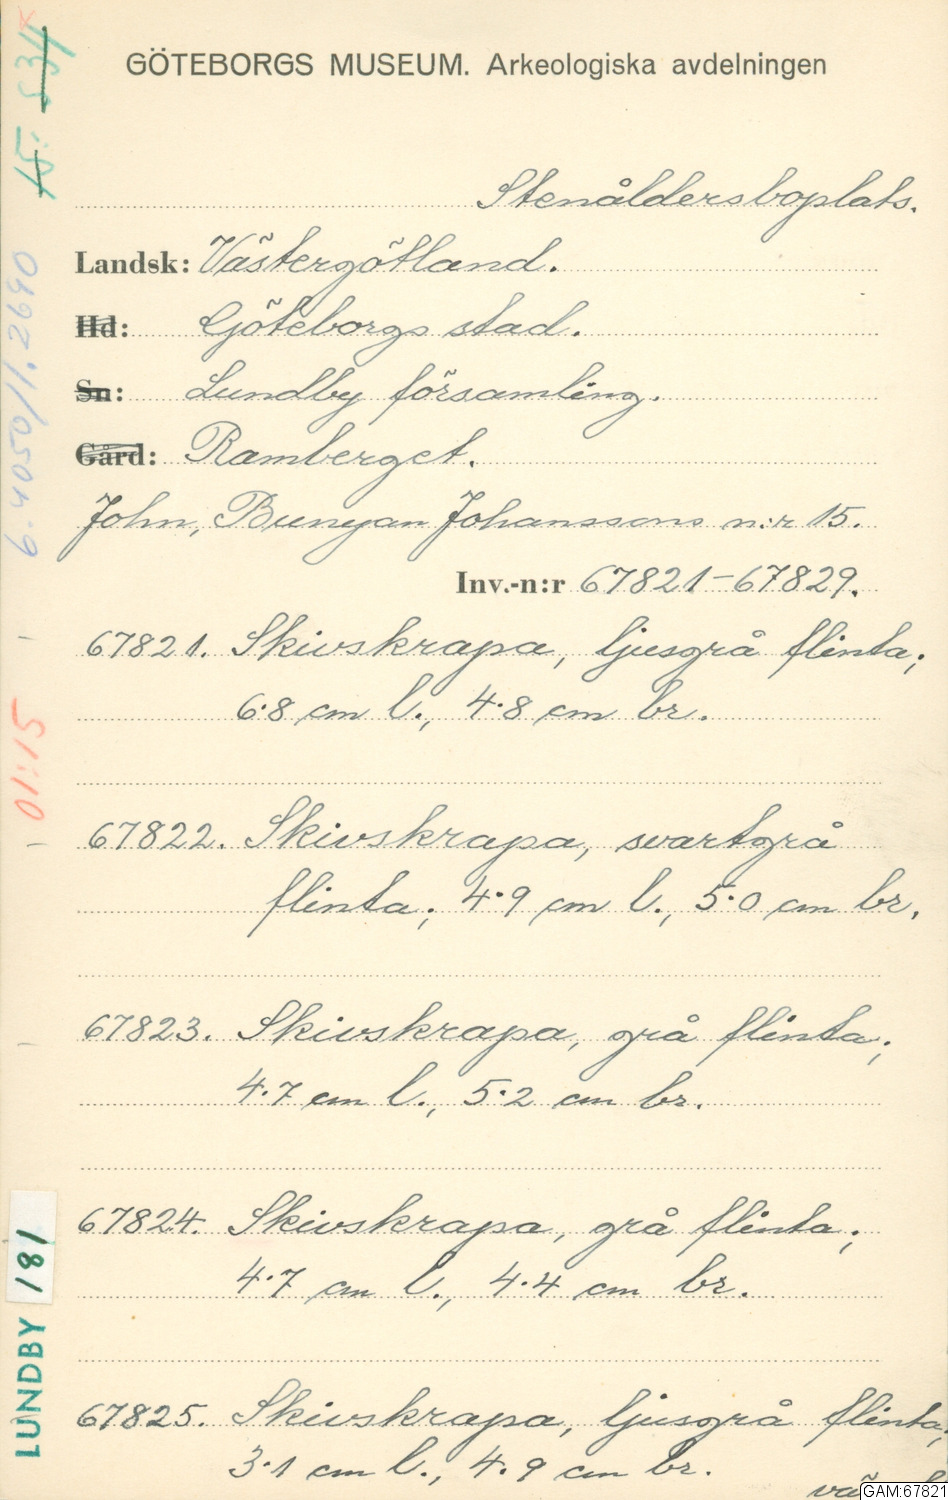 GÖTEBORGS MUSEUM. Arkeologiska avdelningen
Stenåldersboplats.
Landsk: Västergötland.
Hd: Göteborgs stad.
Sn: Lundby församling.
Gård: Ramberget.
John, Bunyan Johanssons n:r 15.
Inv.-n:r 67821-67829.
67821. Skivskrapa, ljusgrå flinta;
6.8 cm l., 4.8 cm br.
67822. Skivskrapa, svartgrå
flinta; 4.9 cm l., 5.0 cm br.
67823. Skivskrapa, grå flinta;
4.7 cm l., 5.2 cm br.
67824. Skivskrapa, grå flinta;
4.7 cm l., 4.4 cm br.
67825. Skivskrapa, ljusgrå flinta;
3.1 cm l., 4.9 cm br.
GAM:67821
LUNDBY 181
01:15
6.4050/1.2690